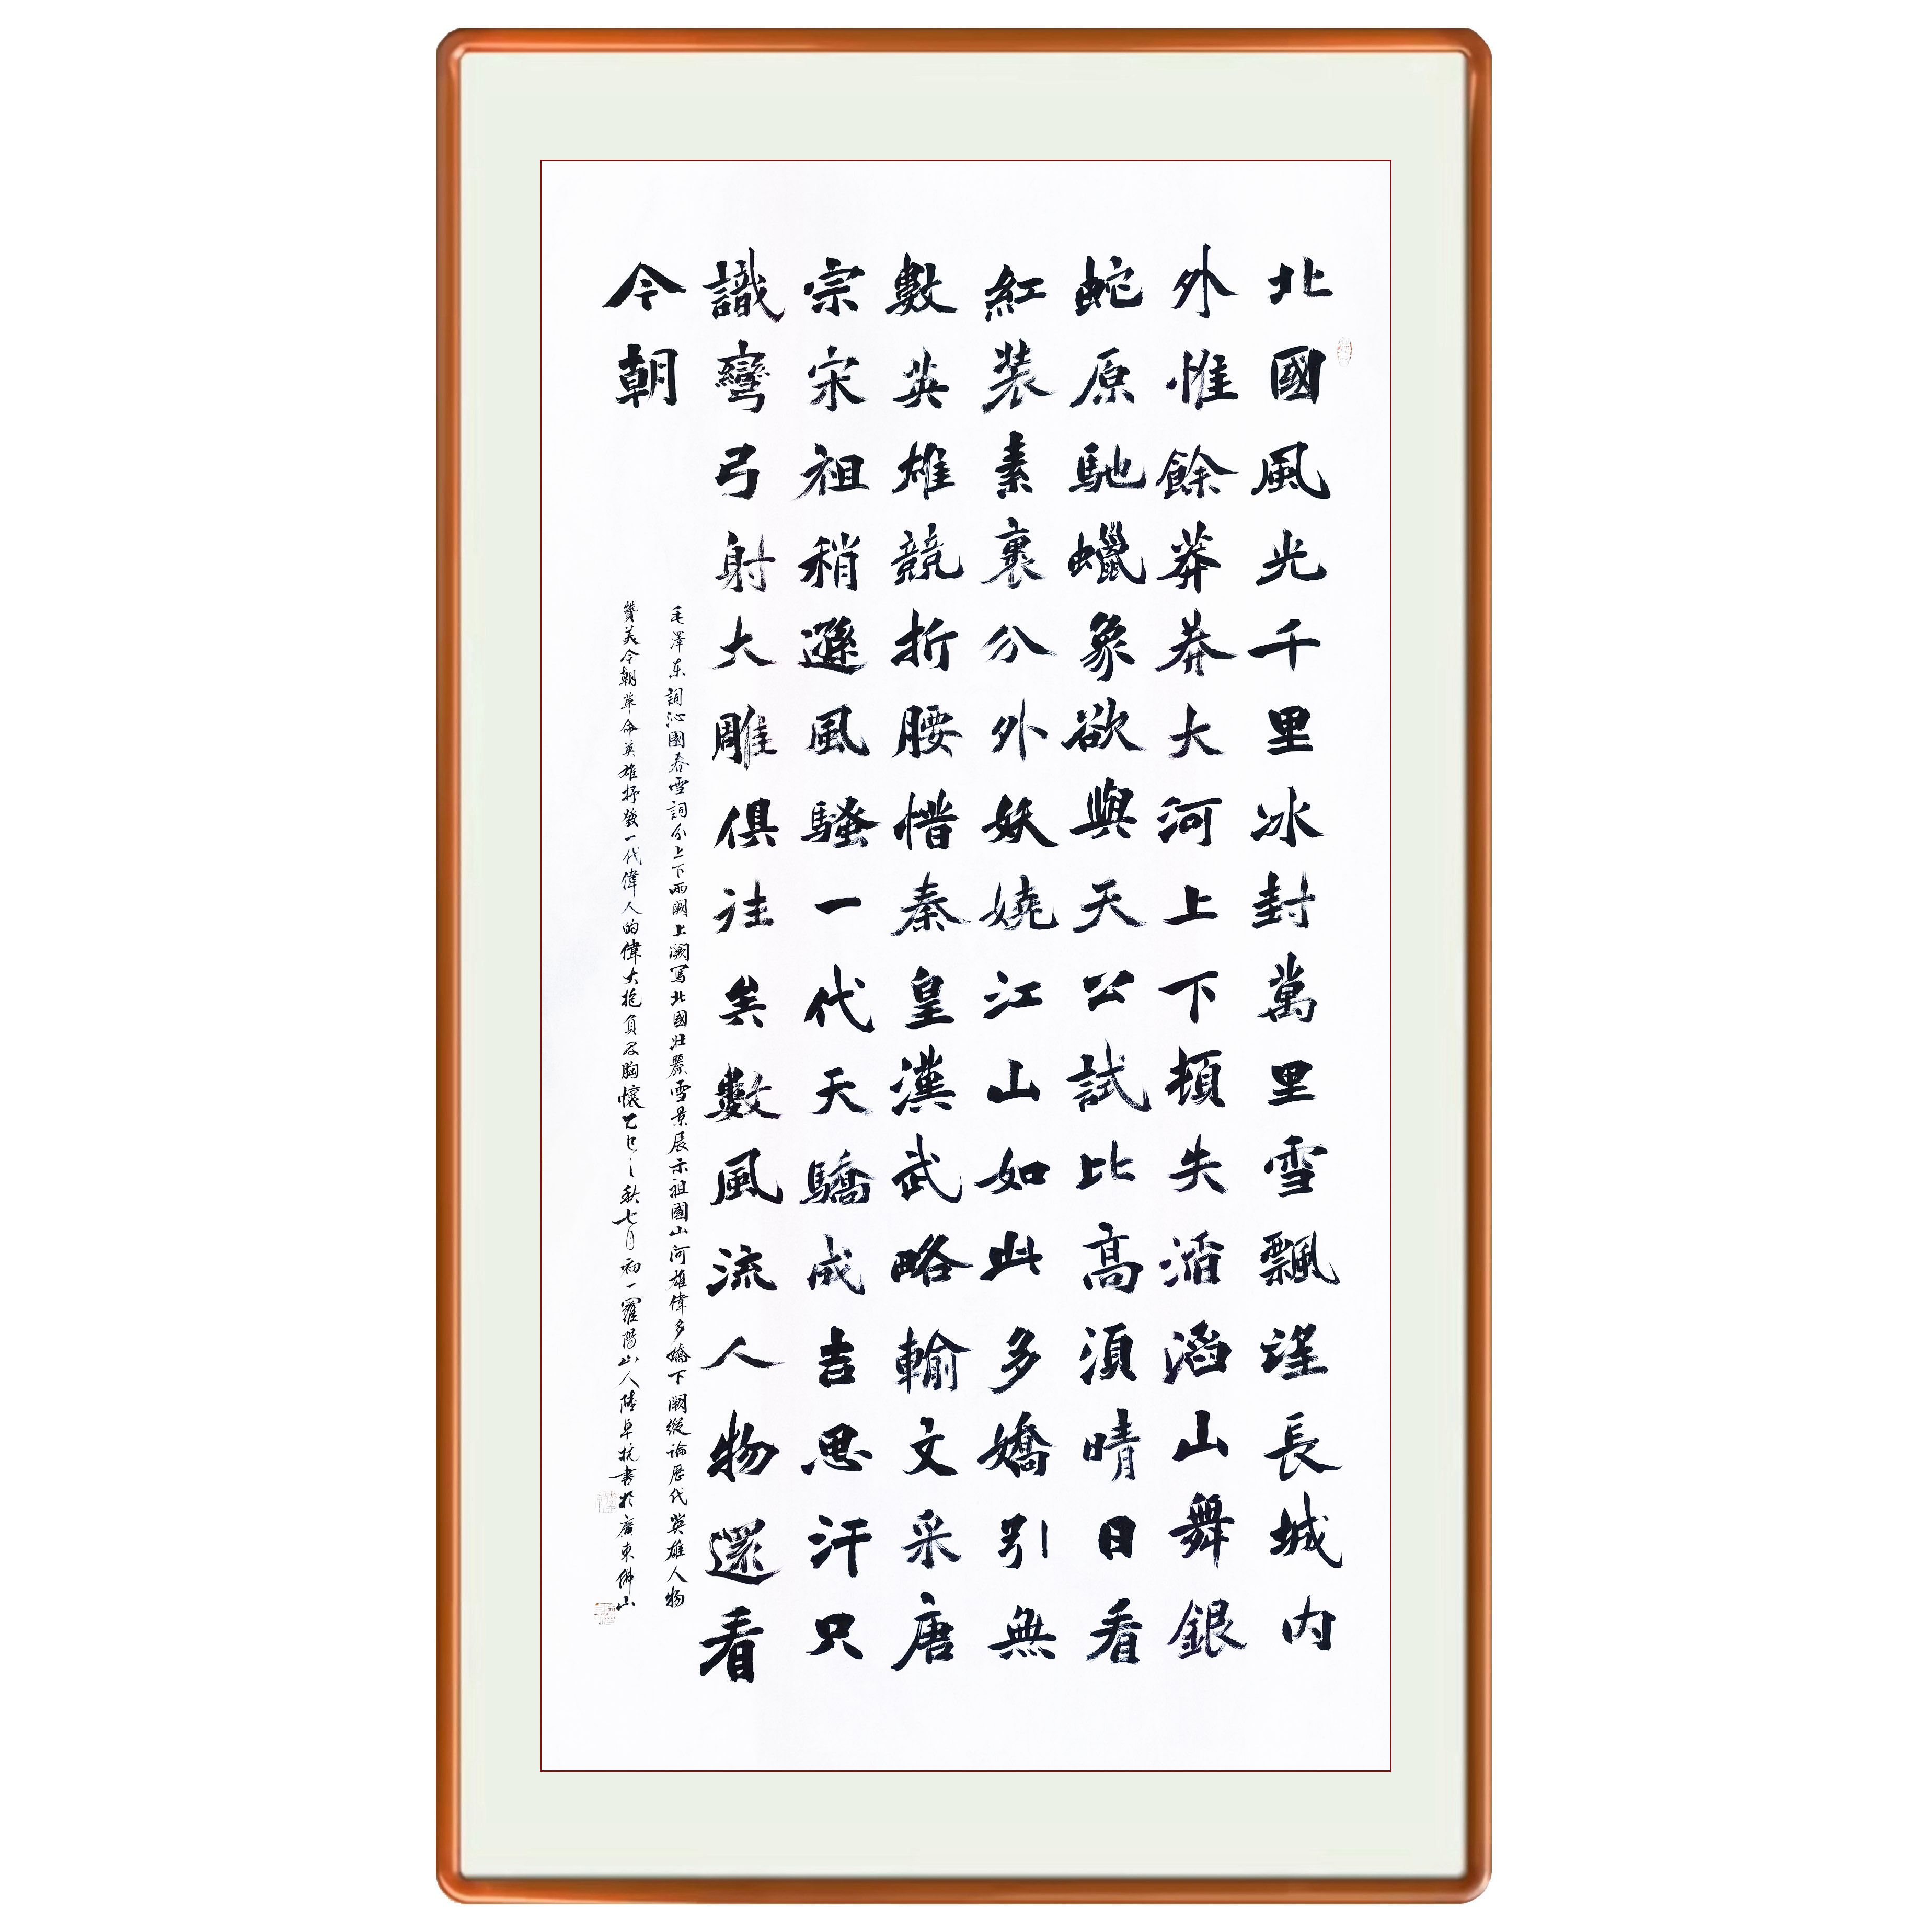 北國風光千里冰封萬里雪飄望長城内
外惟餘莽莽大河上下頓失滔滔山舞銀
蛇原馳蠟象欲與天公試比高須晴日看
紅装素裹分外妖嬈江山如此多嬌引無
數英雄競折腰惜秦皇漢武略輸文采唐
宗宋祖稍遜風騷一代天驕成吉思汗只
識彎弓射大雕俱往矣數風流人物還看
今朝
毛澤东詞沁園春雪詞分上下兩闕上闕寫北國壯麗雪景展示祖國山河雄偉多嬌下闕縱論歷代英雄人物
贊美今朝革命英雄抒發一代偉人的偉大抱負及胸懷乙巳之秋七月初一羅陽山人陸卓抗書於廣東佛山